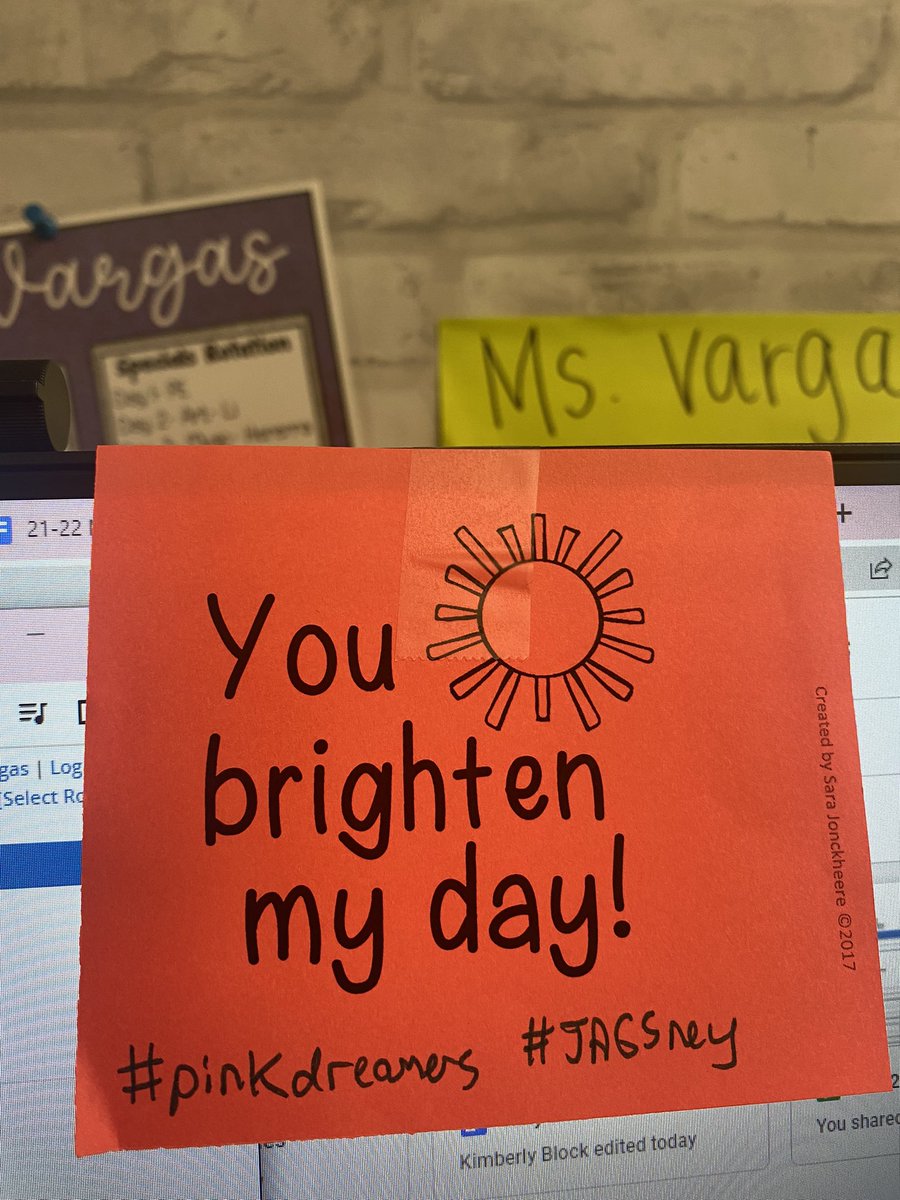 Vargas
Specials Rotation
Day 1: PE
Ms. Varga
21-22
gas | Log
[Select Ro
You
brighten
my day!
Created by Sara Jonckheere ©2017
#pinkdreamers #JAGSney
Kimberly Block edited today
You share